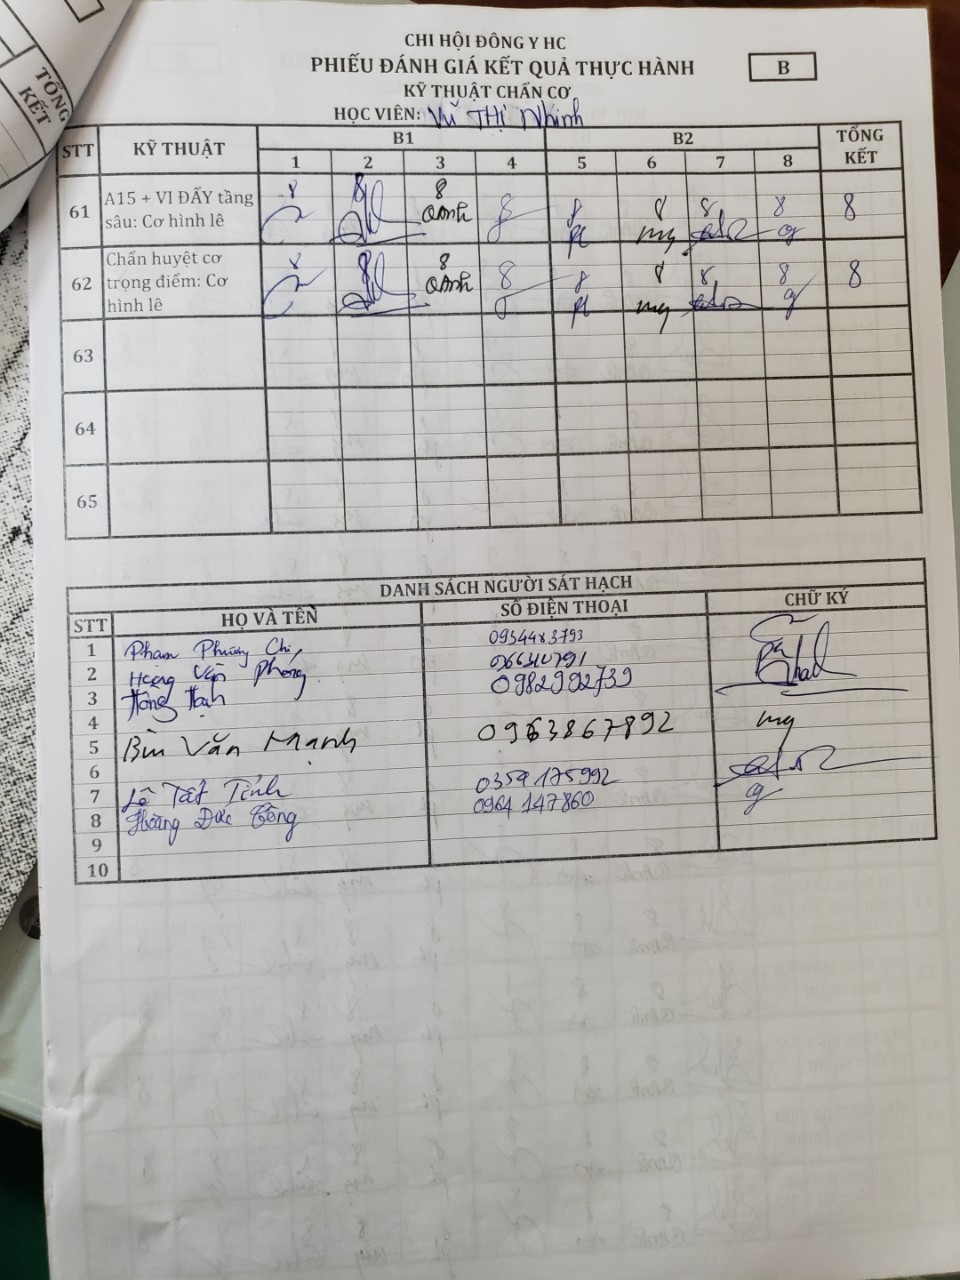 TỔNG
KẾT
CHI HỘI ĐÔNG Y HC
PHIẾU ĐÁNH GIÁ KẾT QUẢ THỰC HÀNH
B
KỸ THUẬT CHẨN CƠ
HỌC VIÊN: Vũ Thị Nhinh
STT KỸ THUẬT B1 B2 TỔNG KẾT
1 2 3 4 5 6 7 8
61 A15 + VI ĐẨY tầng sâu: Cơ hình lê 8 8 8 8 8 8 8 8 8
Oanh pt mg
62 Chẩn huyệt cơ trọng điểm: Cơ hình lê 8 8 8 8 8 8 8 8 8
Oanh pt mg
63
64
65
DANH SÁCH NGƯỜI SÁT HẠCH
STT HỌ VÀ TÊN SỐ ĐIỆN THOẠI CHỮ KÝ
1 Phạm Phương Chi 0934483793
2 Hoàng Văn Phóng
3 Hồng Hạnh 0982992739
4
5 Bùi Văn Mạnh 0963867892 mg
6
7 Lê Tất Tính 0359175992
8 Hoàng Đức 0964147860
9
10